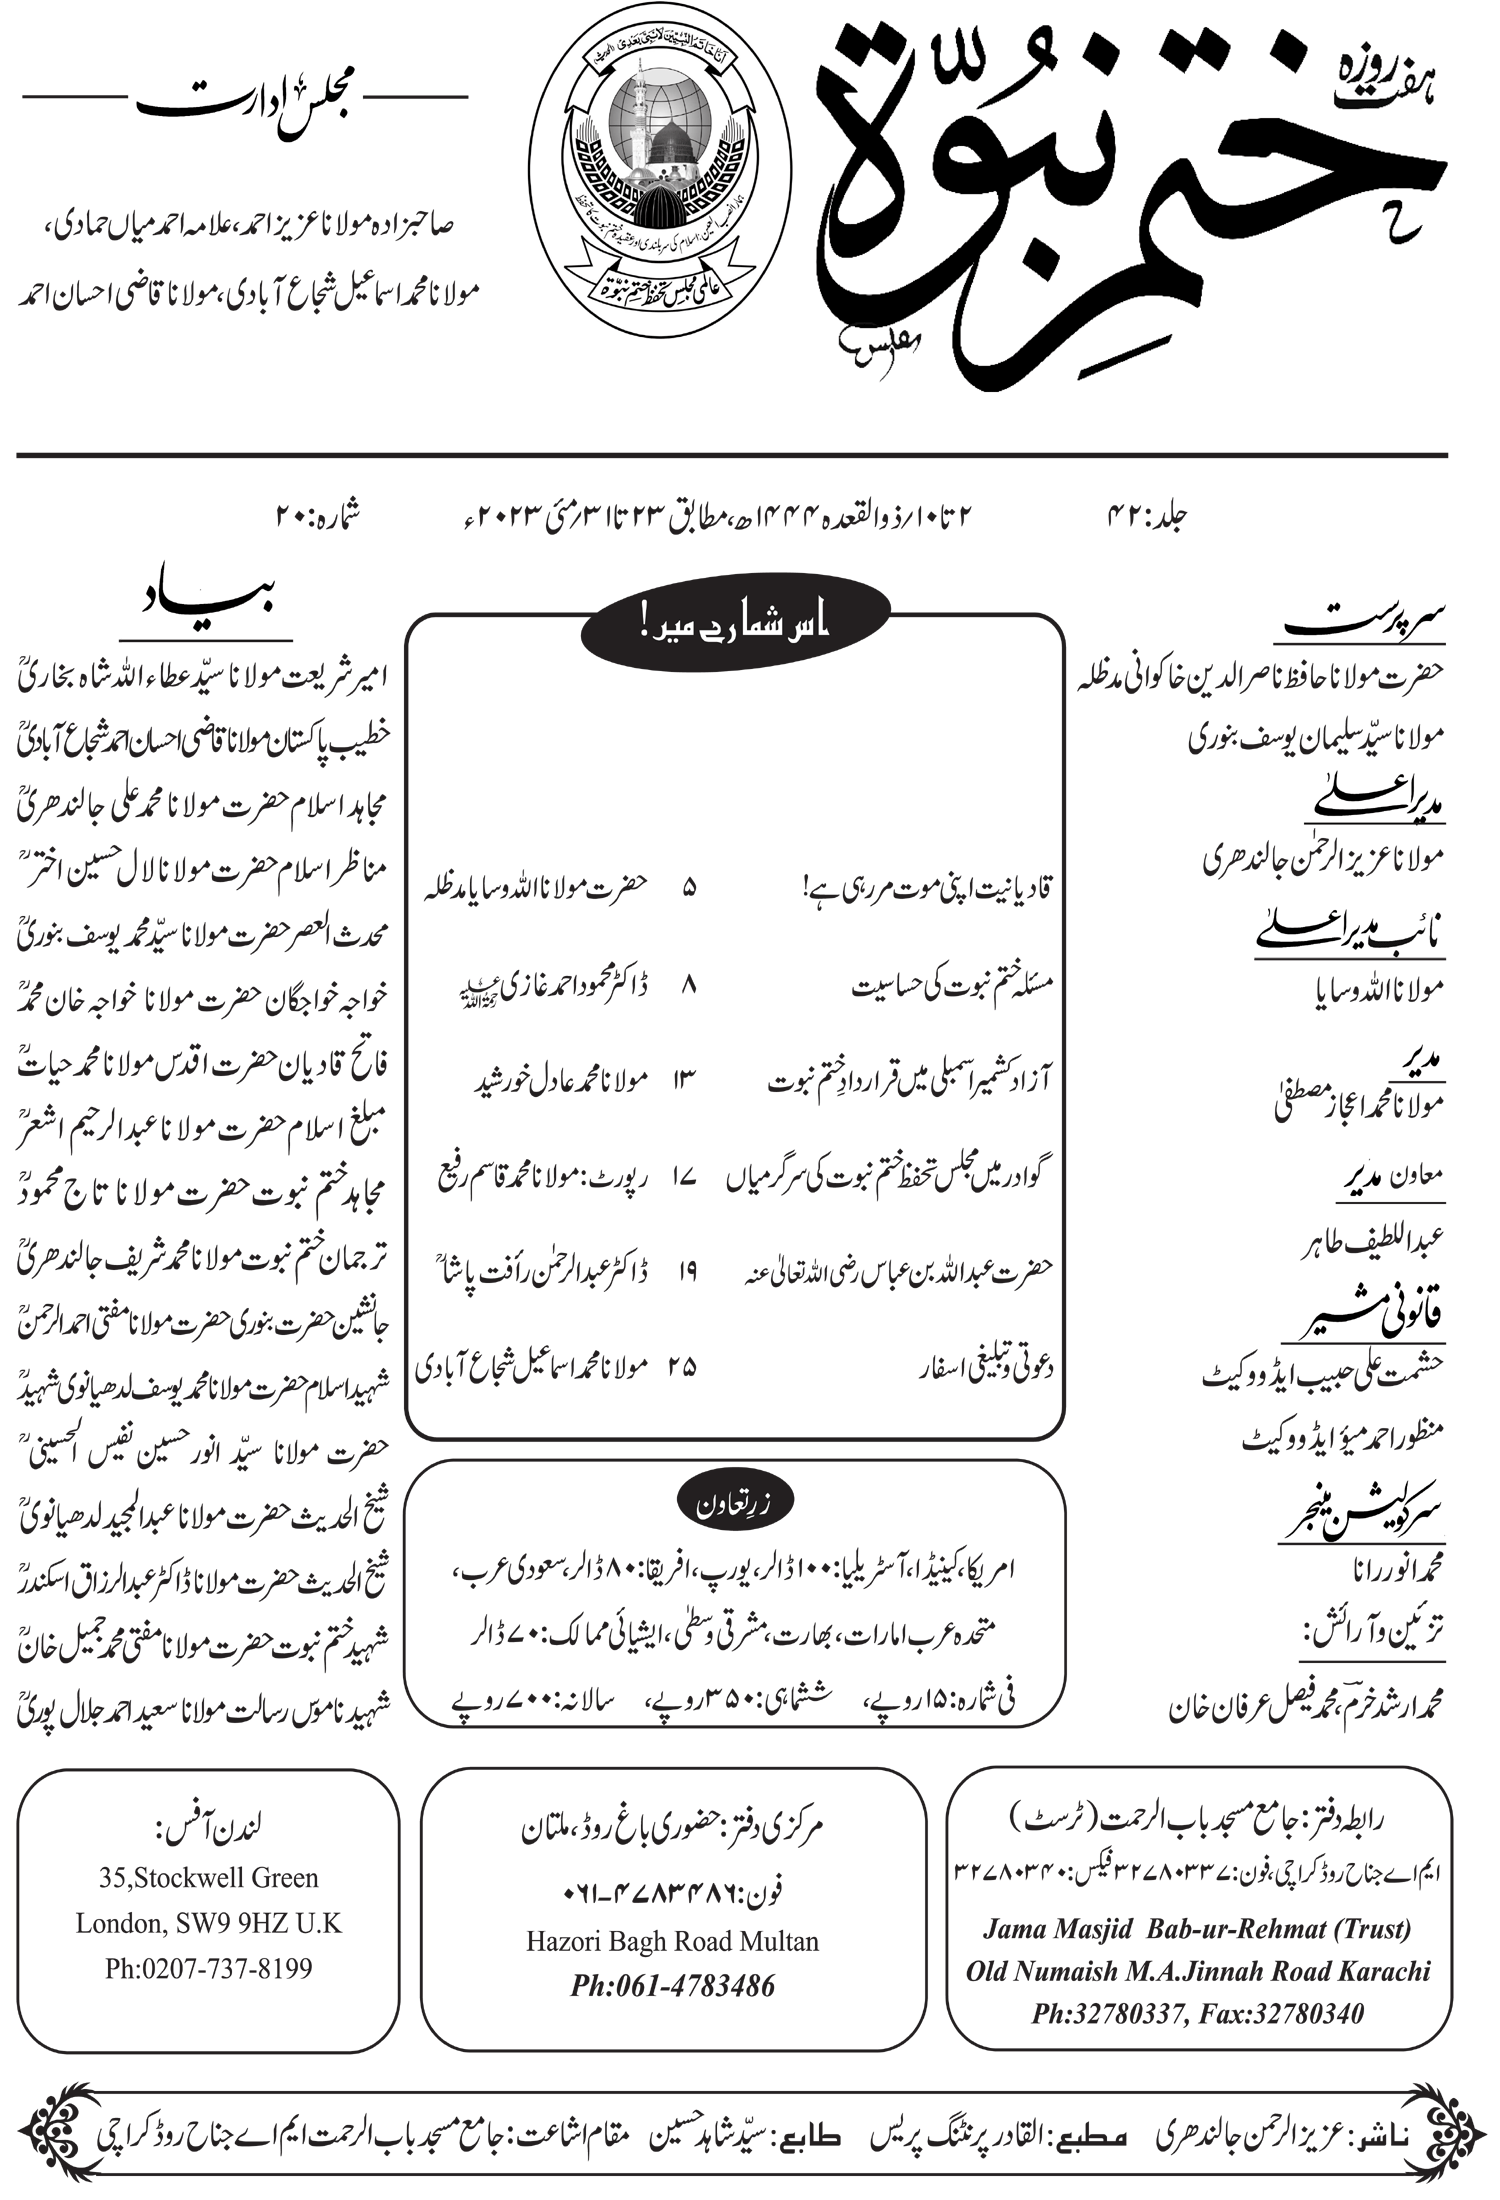 ہفت روزہ
ختم نبوّۃ
انا خاتم النبیین لا نبی بعدی
عالمی مجلس تحفظ ختم نبوّۃ
مجلس ادارت
صاحبزادہ مولانا عزیز احمد، علامہ احمد میاں حمادی،
مولانا محمد اسماعیل شجاع آبادی، مولانا قاضی احسان احمد
جلد: ۴۲
۲ تا ۱۰؍ذوالقعدہ ۱۴۴۴ھ، مطابق ۲۳ تا ۳۱؍مئی ۲۰۲۳ء
شمارہ: ۲۰
سرپرست
حضرت مولانا حافظ ناصر الدین خاکوانی مدظلہ
مولانا سیّد سلیمان یوسف بنوری
مدیر اعلےٰ
مولانا عزیز الرحمٰن جالندھری
نائب مدیر اعلےٰ
مولانا اللہ وسایا
مدیر
مولانا محمد اعجاز مصطفیٰ
معاون مدیر
عبد اللطیف طاہر
قانونی مشیر
حشمت علی حبیب ایڈووکیٹ
منظور احمد میؤ ایڈووکیٹ
سرکولیشن مینجر
محمد انور رانا
تزئین و آرائش:
محمد ارشد خرم، محمد فیصل عرفان خان
اس شمارے میں!
قادیانیت اپنی موت مر رہی ہے! ۵ حضرت مولانا اللہ وسایا مدظلہ
مسئلہ ختم نبوت کی حساسیت ۸ ڈاکٹر محمود احمد غازی رحمۃ اللہ علیہ
آزاد کشمیر اسمبلی میں قراردادِ ختم نبوت ۱۳ مولانا محمد عادل خورشید
گوادر میں مجلس تحفظ ختم نبوت کی سرگرمیاں ۱۷ رپورٹ: مولانا محمد قاسم رفیع
حضرت عبداللہ بن عباس رضی اللہ تعالیٰ عنہ ۱۹ ڈاکٹر عبدالرحمٰن رأفت پاشاؒ
دعوتی و تبلیغی اسفار ۲۵ مولانا محمد اسماعیل شجاع آبادی
زرِ تعاون
امریکا، کینیڈا، آسٹریلیا: ۱۰۰ ڈالر، یورپ، افریقا: ۸۰ ڈالر، سعودی عرب،
متحدہ عرب امارات، بھارت، مشرقِ وسطیٰ، ایشیائی ممالک: ۷۰ ڈالر
فی شمارہ: ۱۵ روپے، ششماہی: ۳۵۰ روپے، سالانہ: ۷۰۰ روپے
بیاد
امیر شریعت مولانا سیّد عطاء اللہ شاہ بخاریؒ
خطیب پاکستان مولانا قاضی احسان احمد شجاع آبادیؒ
مجاہد اسلام حضرت مولانا محمد علی جالندھریؒ
مناظر اسلام حضرت مولانا لال حسین اخترؒ
محدث العصر حضرت مولانا سیّد محمد یوسف بنوریؒ
خواجہ خواجگان حضرت مولانا خواجہ خان محمدؒ
فاتح قادیان حضرت اقدس مولانا محمد حیاتؒ
مبلغ اسلام حضرت مولانا عبدالرحیم اشعرؒ
مجاہد ختم نبوت حضرت مولانا تاج محمودؒ
ترجمان ختم نبوت مولانا محمد شریف جالندھریؒ
جانشین حضرت بنوری حضرت مولانا مفتی احمد الرحمنؒ
شہید اسلام حضرت مولانا محمد یوسف لدھیانوی شہیدؒ
حضرت مولانا سیّد انور حسین نفیس الحسینیؒ
شیخ الحدیث حضرت مولانا عبدالمجید لدھیانویؒ
شیخ الحدیث حضرت مولانا ڈاکٹر عبدالرزاق اسکندرؒ
شہید ختم نبوت حضرت مولانا مفتی محمد جمیل خانؒ
شہید ناموس رسالت مولانا سعید احمد جلال پوریؒ
رابطہ دفتر: جامع مسجد باب الرحمت (ٹرسٹ)
ایم اے جناح روڈ کراچی، فون: ۳۲۷۸۰۳۳۷ فیکس: ۳۲۷۸۰۳۴۰
Jama Masjid Bab-ur-Rehmat (Trust)
Old Numaish M.A.Jinnah Road Karachi
Ph:32780337, Fax:32780340
مرکزی دفتر: حضوری باغ روڈ، ملتان
فون: ۰۶۱-۴۷۸۳۴۸۶
Hazori Bagh Road Multan
Ph:061-4783486
لندن آفس:
35,Stockwell Green
London, SW9 9HZ U.K
Ph:0207-737-8199
ناشر: عزیز الرحمن جالندھری مطبع: القادر پرنٹنگ پریس طابع: سیّد شاہد حسین مقام اشاعت: جامع مسجد باب الرحمت ایم اے جناح روڈ کراچی